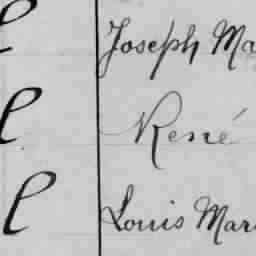 l Joseph Ma
l René
l Louis Mar